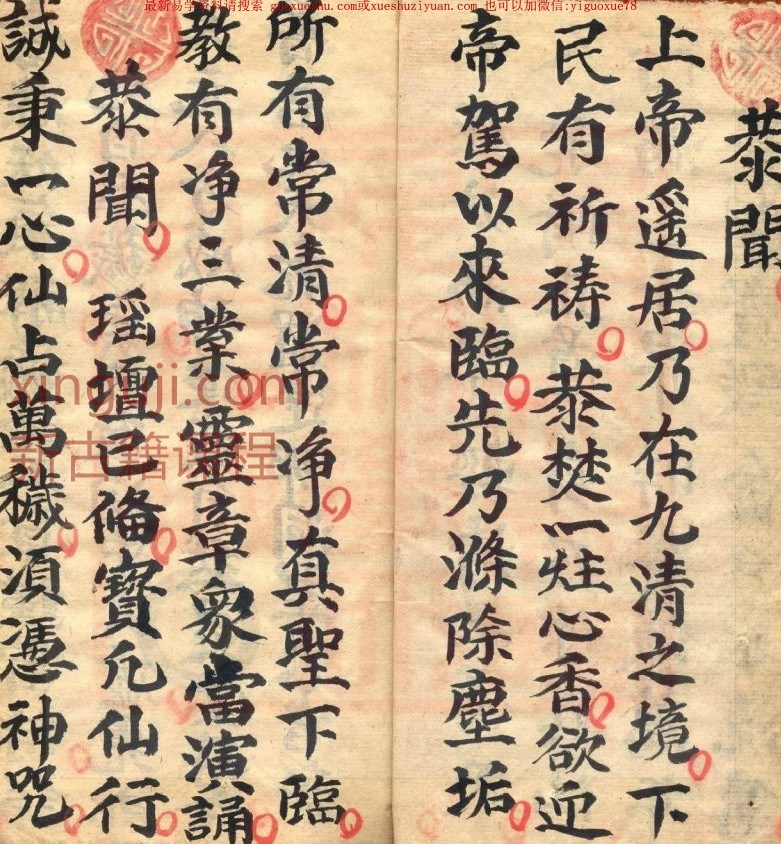 最新易学资料请搜索 guoxueshu.com或xueshuziyuan.com 也可以加微信:yiguoxue78
恭聞
上帝遥居乃在九清之境下
民有祈祷恭焚一炷心香欲迎
帝駕以來臨先乃滌除塵垢
所有常清常净真聖下臨
教有净三業靈章衆當演誦
恭聞瑶壇已俻寳几仙行
誠秉一心仙占萬穢湏憑神咒
xingуji.com
新古籍课程